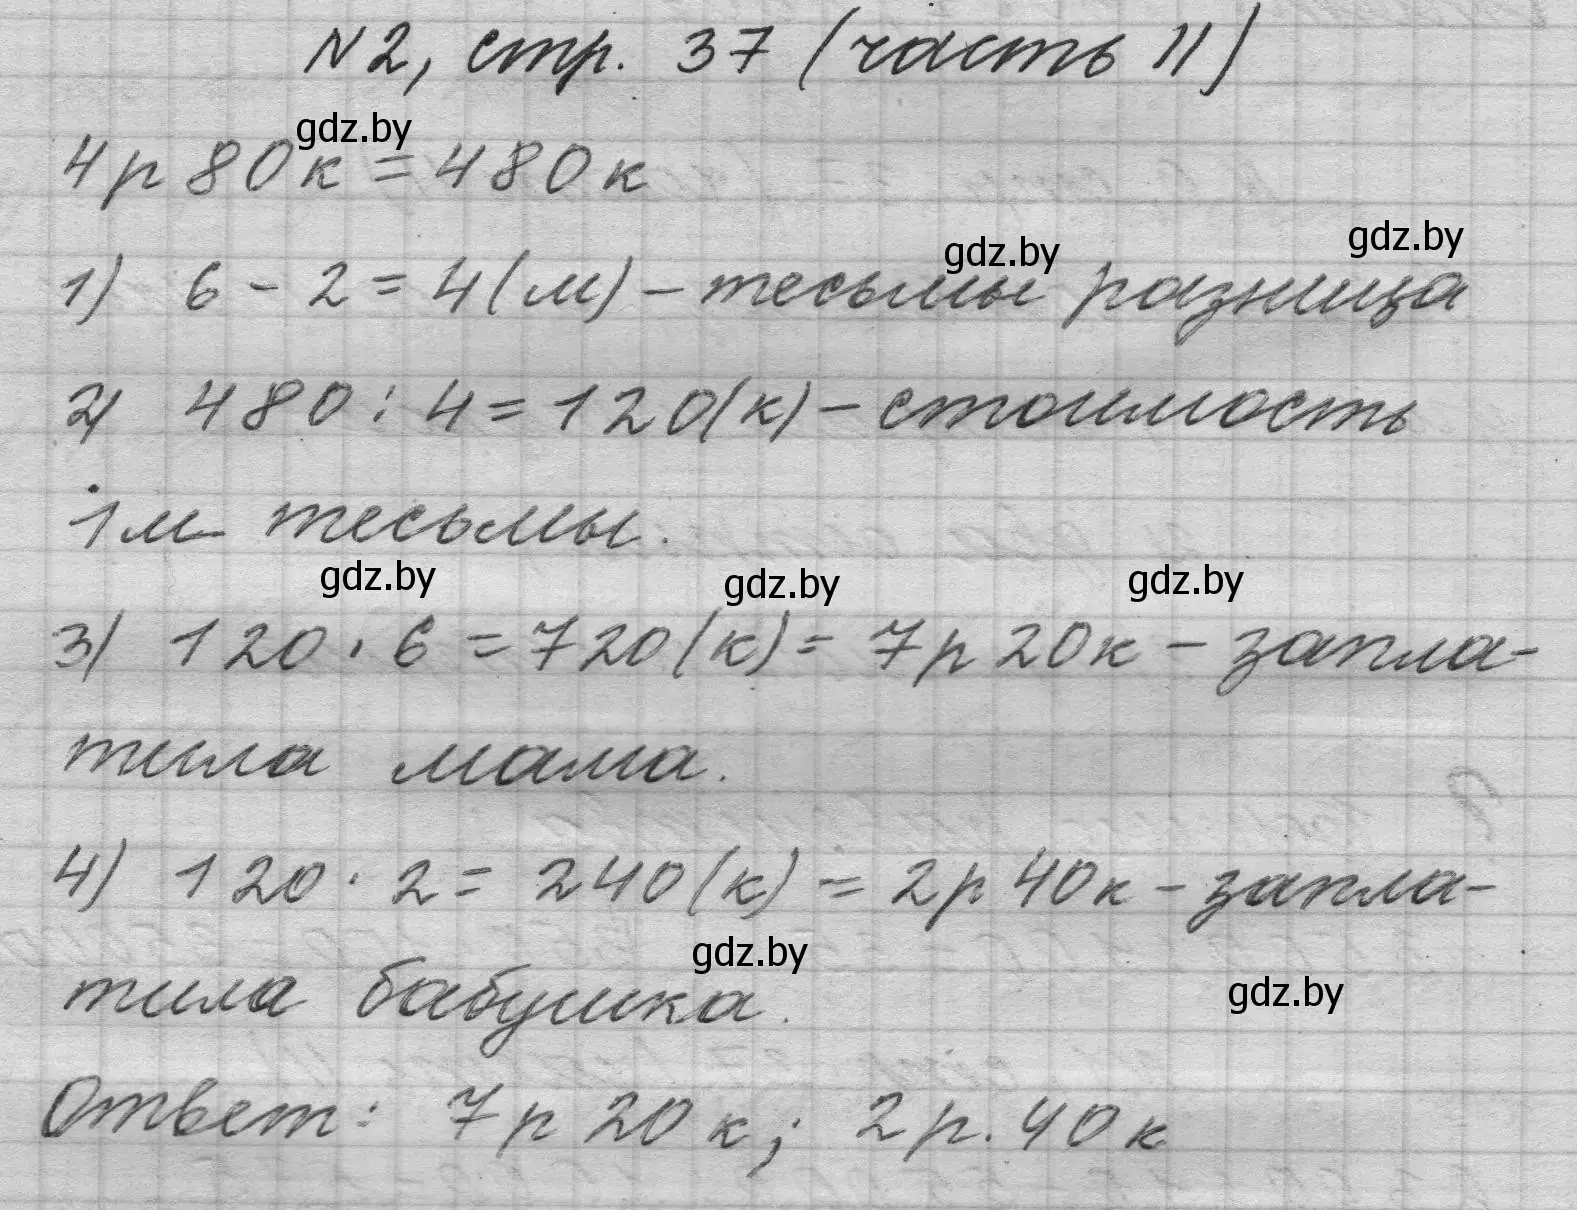 N2, стр. 37 (часть II)
gdz.by
4р 80к = 480к
gdz.by
gdz.by
1) 6 - 2 = 4(м) - тесьмы разница
2) 480 : 4 = 120(к) - стоимость
1м тесьмы.
gdz.by
gdz.by
gdz.by
3) 120 · 6 = 720(к) = 7р 20к - запла-
тила мама.
4) 120 · 2 = 240(к) = 2р 40к - запла-
gdz.by
тила бабушка.
gdz.by
Ответ: 7р 20к; 2р. 40к